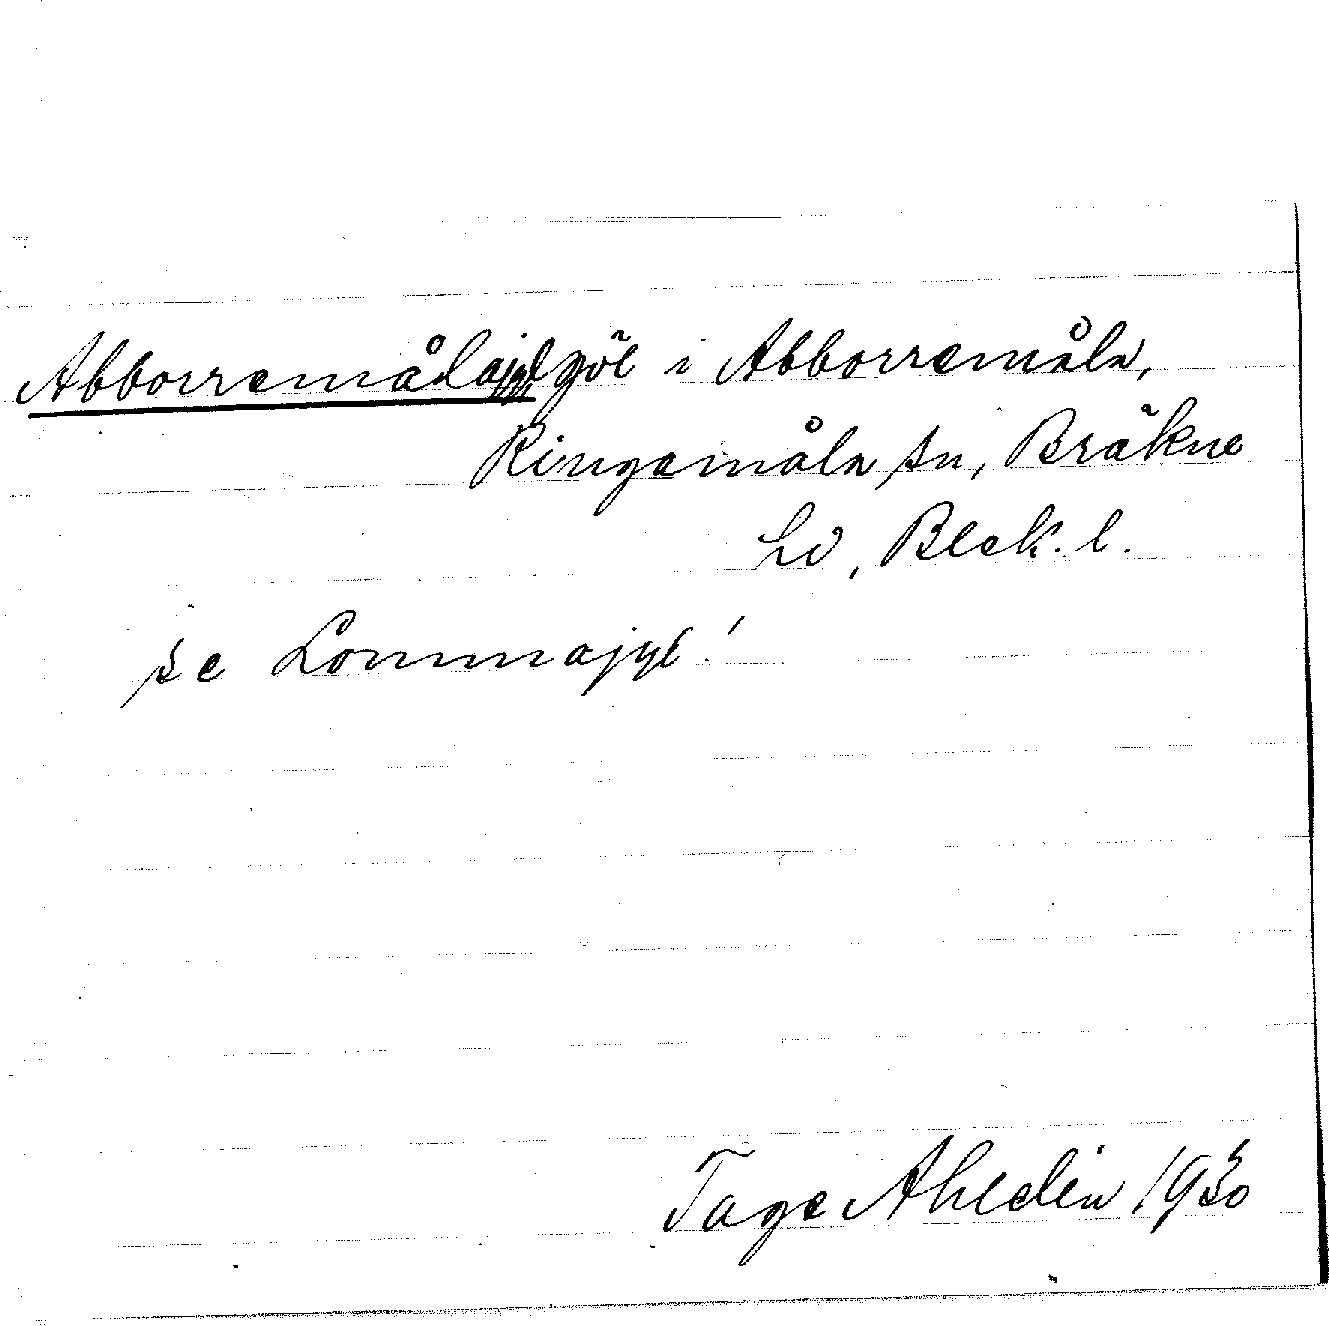 Abborremålajyl göl i Abborremåla,
Ringamåla sn, Bräkne
hd, Blek. l.
se Lommajyl!
Tage Ahldin 1930